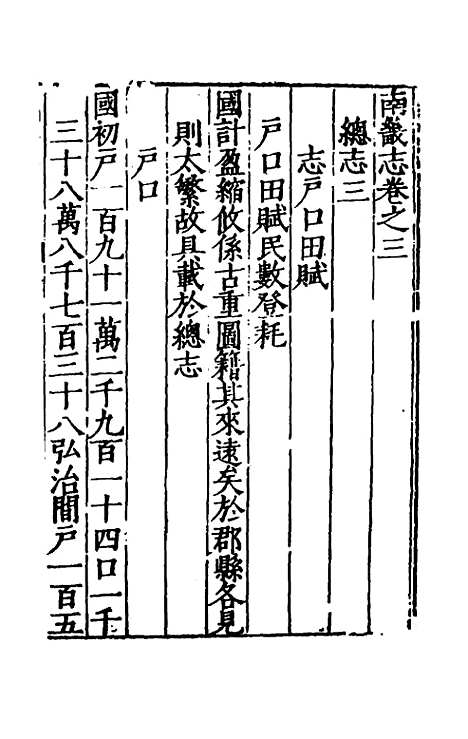 南畿志卷之三
總志三
志戶口田賦
戶口田賦民數登耗
國計盈縮攸係古重圖籍其來遠矣於郡縣各見
則太繁故具載於總志
戶口
國初戶一百九十一萬二千九百一十四口一千
三十八萬八千七百三十八弘治間戶一百五